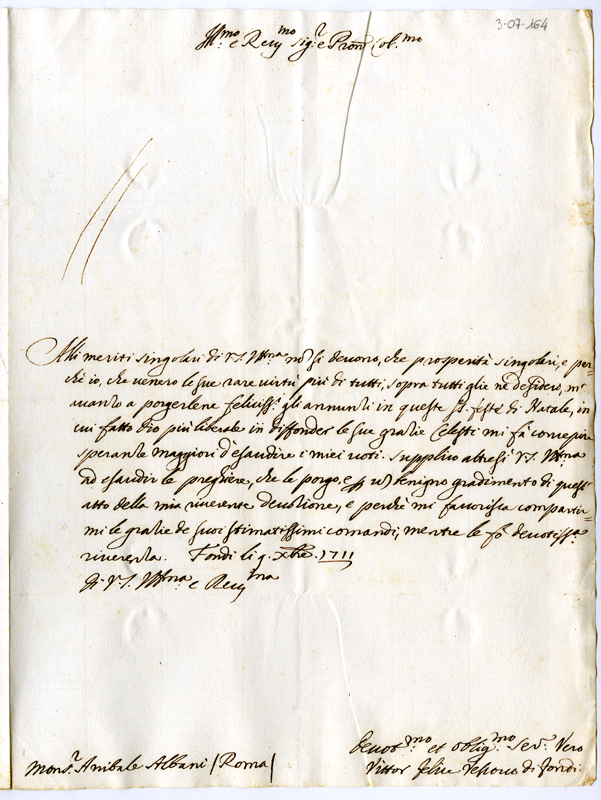 3-07-164
Ill.mo e Rev.mo Sig.r e Pron Col.mo
Alli meriti singolari di V.S. Ill.ma nō si devono, che prosperità singolari, e per=
chè io, che venero le sue rare virtù più di tutti, sopra tutti glie ne desidero, m'
avanzo a porgerlene feliciss.i gli annunzi in queste S. feste di Natale, in
cui fatto Dio più liberale in diffonder le sue grazie Celesti mi fà concepire
speranze maggiori d'esaudire i miei voti. Supplico altresì V.S. Ill.ma
ad esaudir le preghiere, che le porgo, e un benigno gradimento di quest'
atto della mia riverente devozione, e perchè mi favorisca compartir=
mi le grazie de suoi stimatissimi comandi, mentre le fò devotiss.a
riverenza. Fondi li 9. Xbre. 1711
Di V.S. Ill.ma e Rev.ma
Devot.mo et oblig.mo Ser.e Vero
Vittor Felice Vescovo di Fondi.
Mons.r Anibale Albani (Roma)